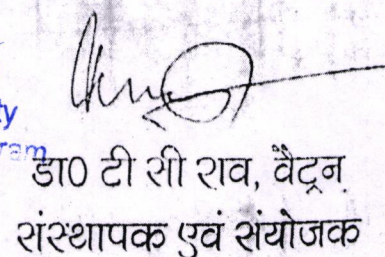 ty
ram
डा0 टी सी राव, वैट्रन
संस्थापक एवं संयोजक